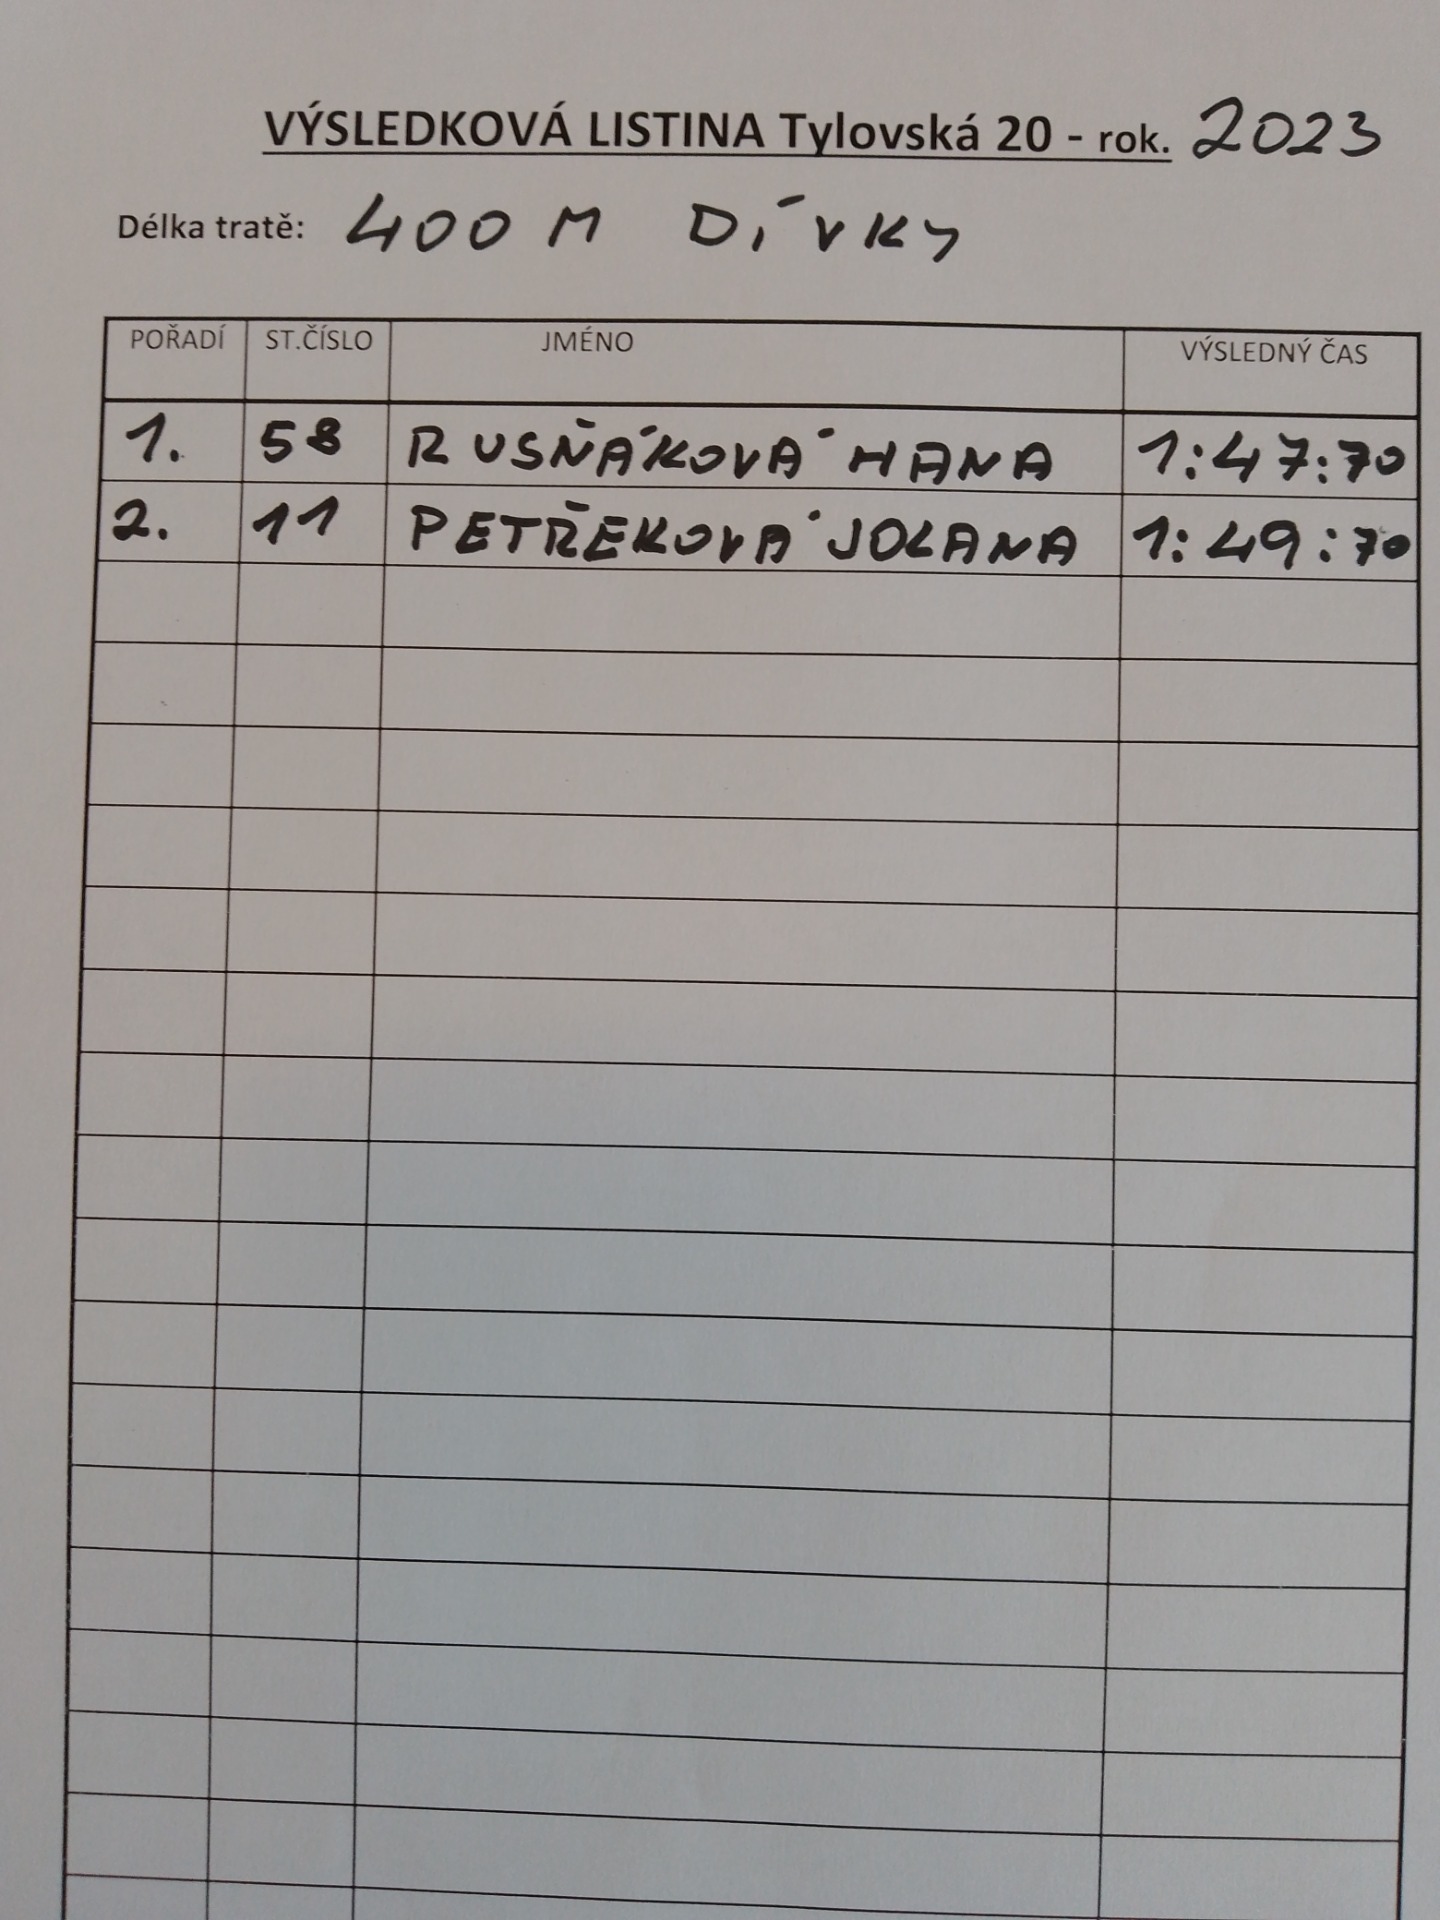 VÝSLEDKOVÁ LISTINA Tylovská 20 - rok. 2023
Délka tratě: 400 M DÍVKY
POŘADÍ ST.ČÍSLO JMÉNO VÝSLEDNÝ ČAS
1. 58 RUSŇÁKOVÁ HANA 1:47:70
2. 11 PETŘEKOVÁ JOLANA 1:49:70